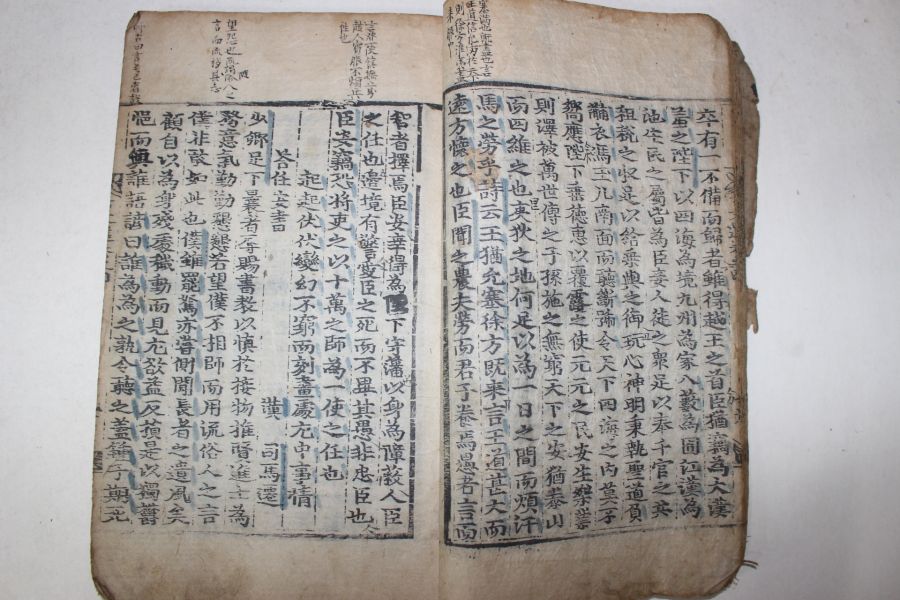 卒有一不備而歸者雖得越王之首臣猶竊為大漢
羞之陛下以四海為境九州為家八藪為囿江漢為
池生民之屬皆為臣妾人徒之衆足以奉千官之共
租稅之收足以給乘輿之御玩心神明秉執聖道負
黼衣馮玉几南面而聽斷號令天下四海之內莫不
嚮應陛下垂德惠以覆露之使元元之民安生樂業
則澤被萬世傳之子孫施之無窮天下之安猶泰山
而四維之也夷狄之地何足以為一日之間而煩汗
馬之勞乎詩云王猶允塞徐方既来言王道甚大而
遠方懷之也臣聞之農夫勞而君子養焉愚者言而
智者擇焉臣安幸得為陛下守藩以身為障蔽人臣
之任也邊境有警愛臣之死而不畢其愚非忠臣也
臣安竊恐將吏之以十萬之師為一使之任也
起起伏伏變幻不窮而刻畫處尤中事情
答任安書 漢 司馬遷
少卿足下曩者辱賜書教以愼於接物推賢進士為
務意氣勤勤懇懇若望僕不相師而用流俗人之言
僕非敢如此也僕雖罷駑亦嘗側聞長者之遺風矣
顧自以為身殘處穢動而見尤欲益反損是以獨鬱
悒而與誰語諺曰誰為為之孰令聽之蓋鍾子期死
望怨也
言而流移其志